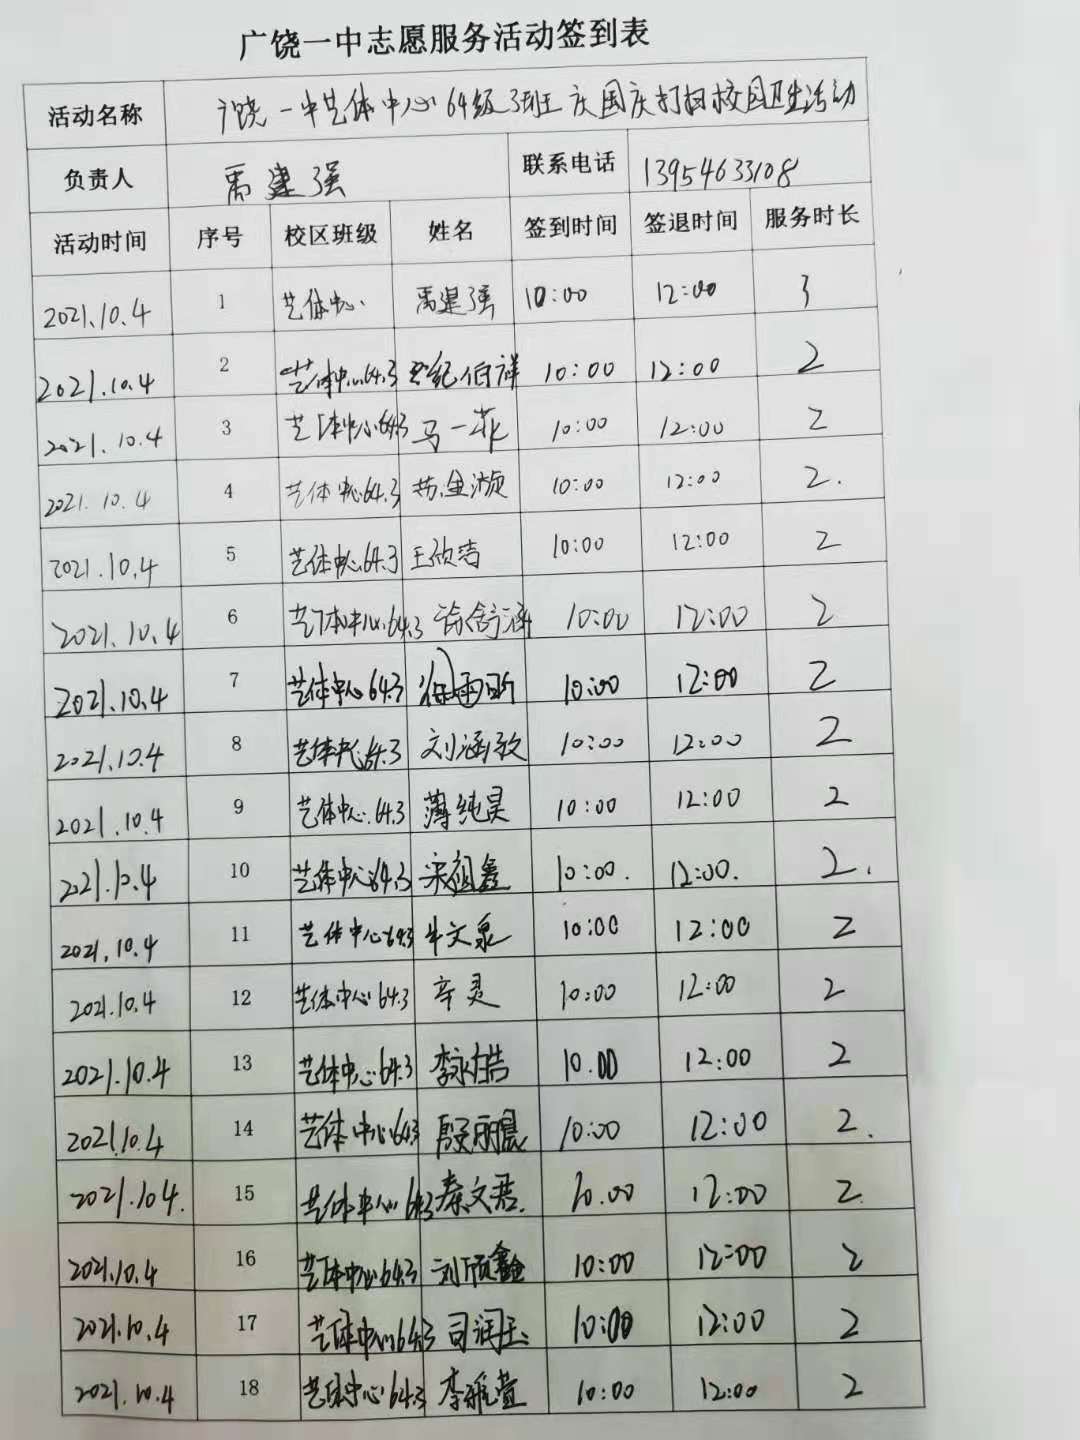 广饶一中志愿服务活动签到表
活动名称 广饶一中艺体中心64级3班庆国庆打扫校园卫生活动
负责人 禹建强 联系电话 13954633108
活动时间 序号 校区班级 姓名 签到时间 签退时间 服务时长
2021.10.4 1 艺体中心 禹建强 10:00 12:00 3
2021.10.4 2 艺体中心64.3 纪伯祥 10:00 12:00 2
2021.10.4 3 艺体中心64.3 马一菲 10:00 12:00 2
2021.10.4 4 艺体中心64.3 10:00 12:00 2.
2021.10.4 5 艺体中心64.3 王欣洁 10:00 12:00 2
2021.10.4 6 艺体中心64.3 舒涵 10:00 12:00 2
2021.10.4 7 艺体中心64.3 10:00 12:00 2
2021.10.4 8 艺体中心64.3 刘涵 10:00 12:00 2
2021.10.4 9 艺体中心64.3 薄纯昊 10:00 12:00 2
2021.10.4 10 艺体中心64.3 宋祖鑫 10:00. 12:00. 2.
2021.10.4 11 艺体中心64.3 牛文泉 10:00 12:00 2
2021.10.4 12 艺体中心64.3 辛灵 10:00 12:00 2
2021.10.4 13 艺体中心64.3 李 10.00 12:00 2
2021.10.4 14 艺体中心64.3 10:00 12:00 2.
2021.104. 15 艺体中心64.3 秦文君. 10.00 12:00 2.
2021.10.4 16 艺体中心64.3 刘欣鑫 10:00 12:00 2
2021.10.4 17 艺体中心64.3 司润玉 10:00 12:00 2
2021.10.4 18 艺体中心64.3 李雅萱 10:00 12:00 2